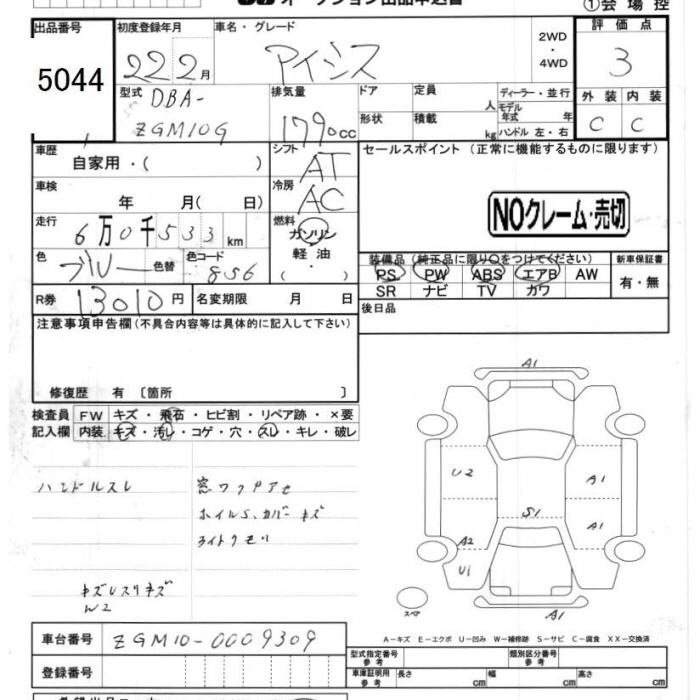 オークション出品申込書
①会場控
出品番号
5044
初度登録年月
22年2月
車名・グレード
アイシス
2WD
・
4WD
評価点
3
外装 内装
C C
型式
DBA-
ZGM10G
排気量
1790cc
ドア
定員
人
形状
積載
kg
ディーラー・並行
モデル年式 年
ハンドル 左・右
車歴
自家用・( )
シフト
AT
車検
年 月( 日)
冷房
AC
走行
6万0千533km
燃料
ガソリン
軽油
( ・ )
色
ブルー
色替
色コード
8S6
R券
13010円
名変期限 月 日
セールスポイント(正常に機能するものに限ります)
NOクレーム・売切
装備品(純正品に限り○をつけてください)
PS PW ABS エアB AW
SR ナビ TV カワ
新車保証書
有・無
後日品
注意事項申告欄(不具合内容等は具体的に記入して下さい)
修復歴 有〔箇所 〕
検査員
記入欄
FW キズ・飛石・ヒビ割・リペア跡・×要
内装 キズ・汚レ・コゲ・穴・スレ・キレ・破レ
ハンドルスレ
窓ワクアセ
ホイルS、カバーキズ
ライトクモリ
キズUスリキズ
W2
A1
U2
A1
A1
S1
A2
U1
A1
スペア
A−キズ E−エクボ U−凹み W−補修跡 S−サビ C−腐食 XX−交換済
車台番号
ZGM10-0009309
登録番号
型式指定番号
参考
類別区分番号
参考
車庫証明用
参考
長さ cm
幅 cm
高さ cm